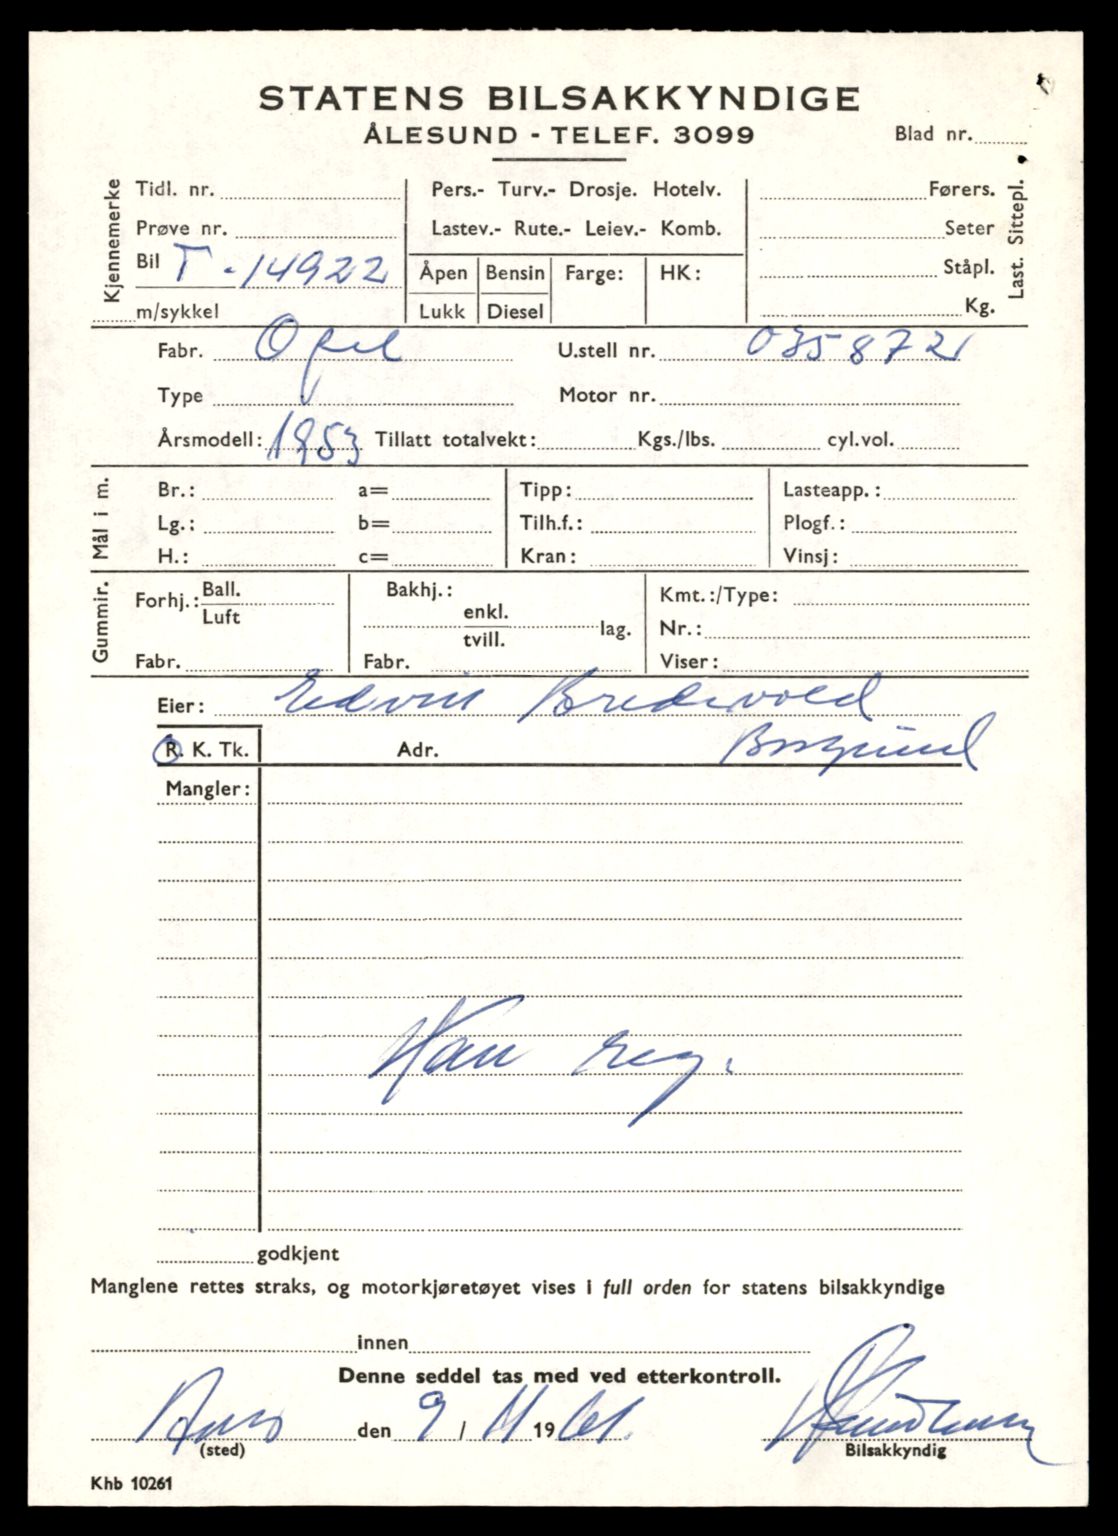 STATENS BILSAKKYNDIGE
ÅLESUND - TELEF. 3099
Blad nr.
Kjennemerke
Tidl. nr.
Pers.- Turv.- Drosje. Hotelv.
Førers.
Prøve nr.
Lastev.- Rute.- Leiev.- Komb.
Seter
Last. Sittepl.
Bil T-14922
Åpen Bensin Farge: HK:
Ståpl.
m/sykkel
Lukk Diesel
Kg.
Fabr. Opel U.stell nr. 0358721
Type Motor nr.
Årsmodell: 1953 Tillatt totalvekt: Kgs./lbs. cyl.vol.
Mål i m.
Br.: a= Tipp: Lasteapp.:
Lg.: b= Tilh.f.: Plogf.:
H.: c= Kran: Vinsj:
Gummir.
Forhj.: Ball. Luft
Bakhj.: enkl. tvill. lag.
Kmt.:/Type:
Nr.:
Fabr. Fabr. Viser:
Eier: Edvin Bredevold
R. K. Tk. Adr. Borgund
Mangler:
Kan reg.
godkjent
Manglene rettes straks, og motorkjøretøyet vises i full orden for statens bilsakkyndige
innen
Denne seddel tas med ved etterkontroll.
den 9/11 1961.
(sted) Bilsakkyndig
Khb 10261